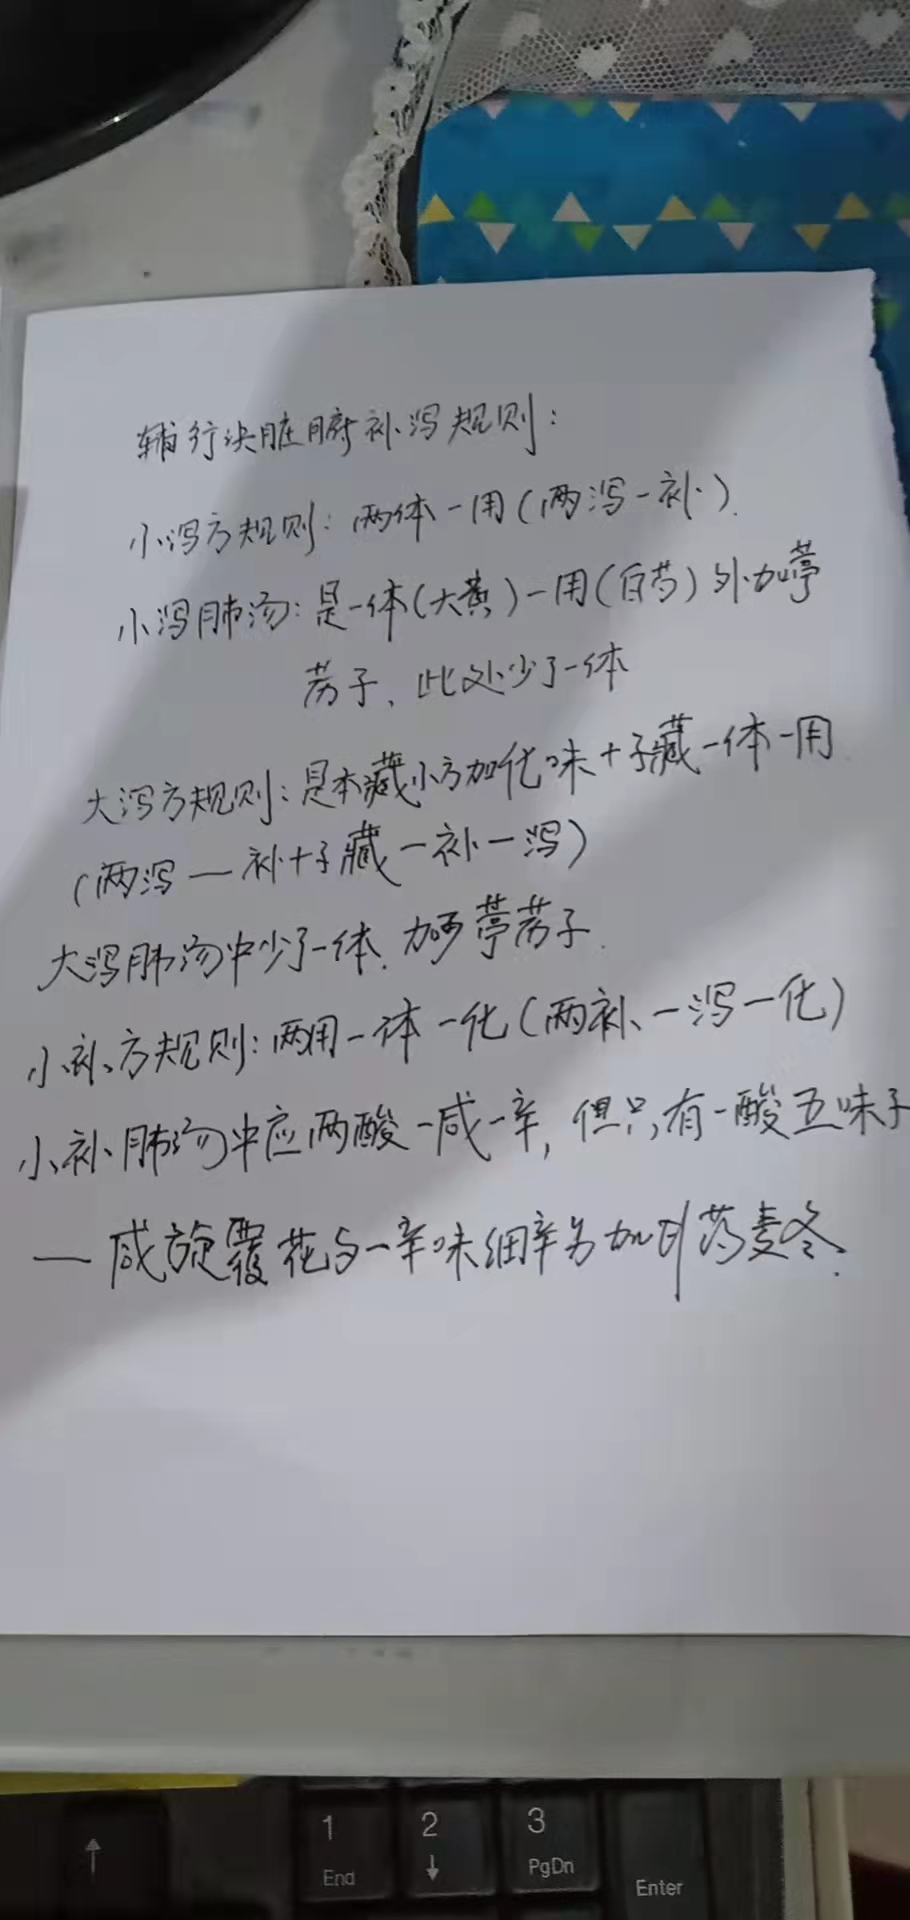 辅行诀脏腑补泻规则：
小泻方规则：两体一用（两泻一补）.
小泻肺汤：是一体(大黄)一用(白芍)外加葶
苈子、此处少了一体
大泻方规则：是本藏小方加化味+子藏一体一用
(两泻一补+子藏一补一泻)
大泻肺汤中少了一体.加葶苈子.
小补方规则：两用一体一化(两补、一泻一化)
小补肺汤中应两酸一咸一辛，但只有一酸五味子
一咸旋覆花与一辛味细辛另加引药麦冬.
1
End
2
↓
3
PgDn
Enter
↑